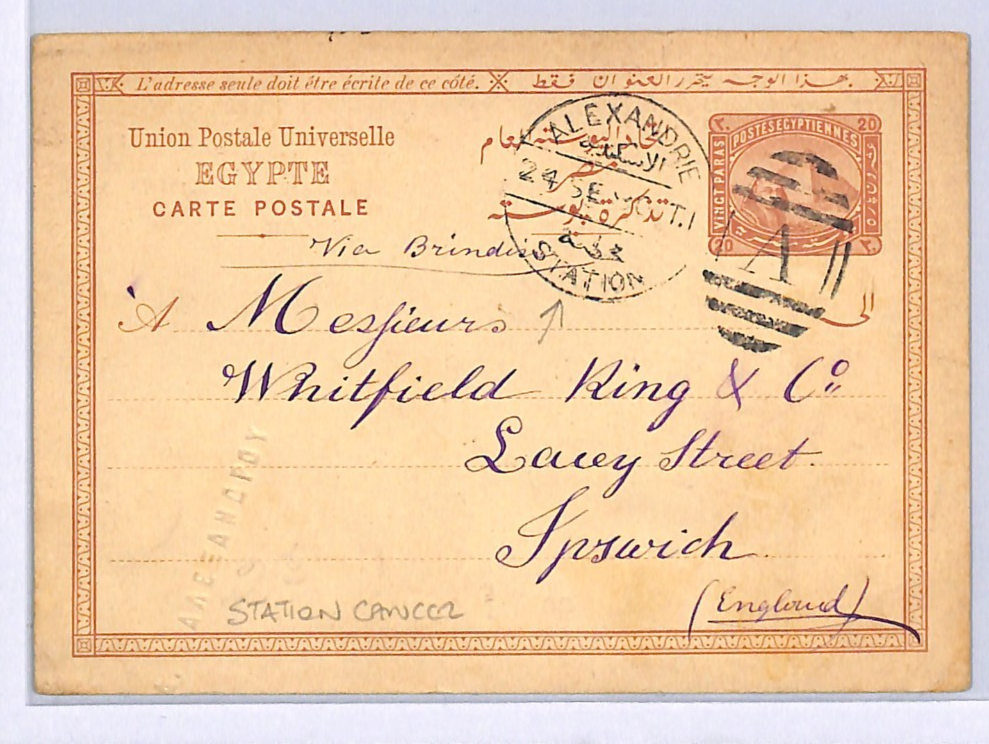 L'adresse seule doit être écrite de ce côté. هذا الوجه يتحرر العنوان فقط
Union Postale Universelle
EGYPTE
CARTE POSTALE
مصر
تذكرة بوسته
ALEXANDRIE
الاسكندرية
24 SE T.I
محطة
STATION
٢٠ POSTES EGYPTIENNES 20
VINGT PARAS
20 ٢٠
A
Via Brindisi
À Messieurs
الى
Whitfield King & Co
Lacey Street.
Ipswich
(England)
STATION CANCEL